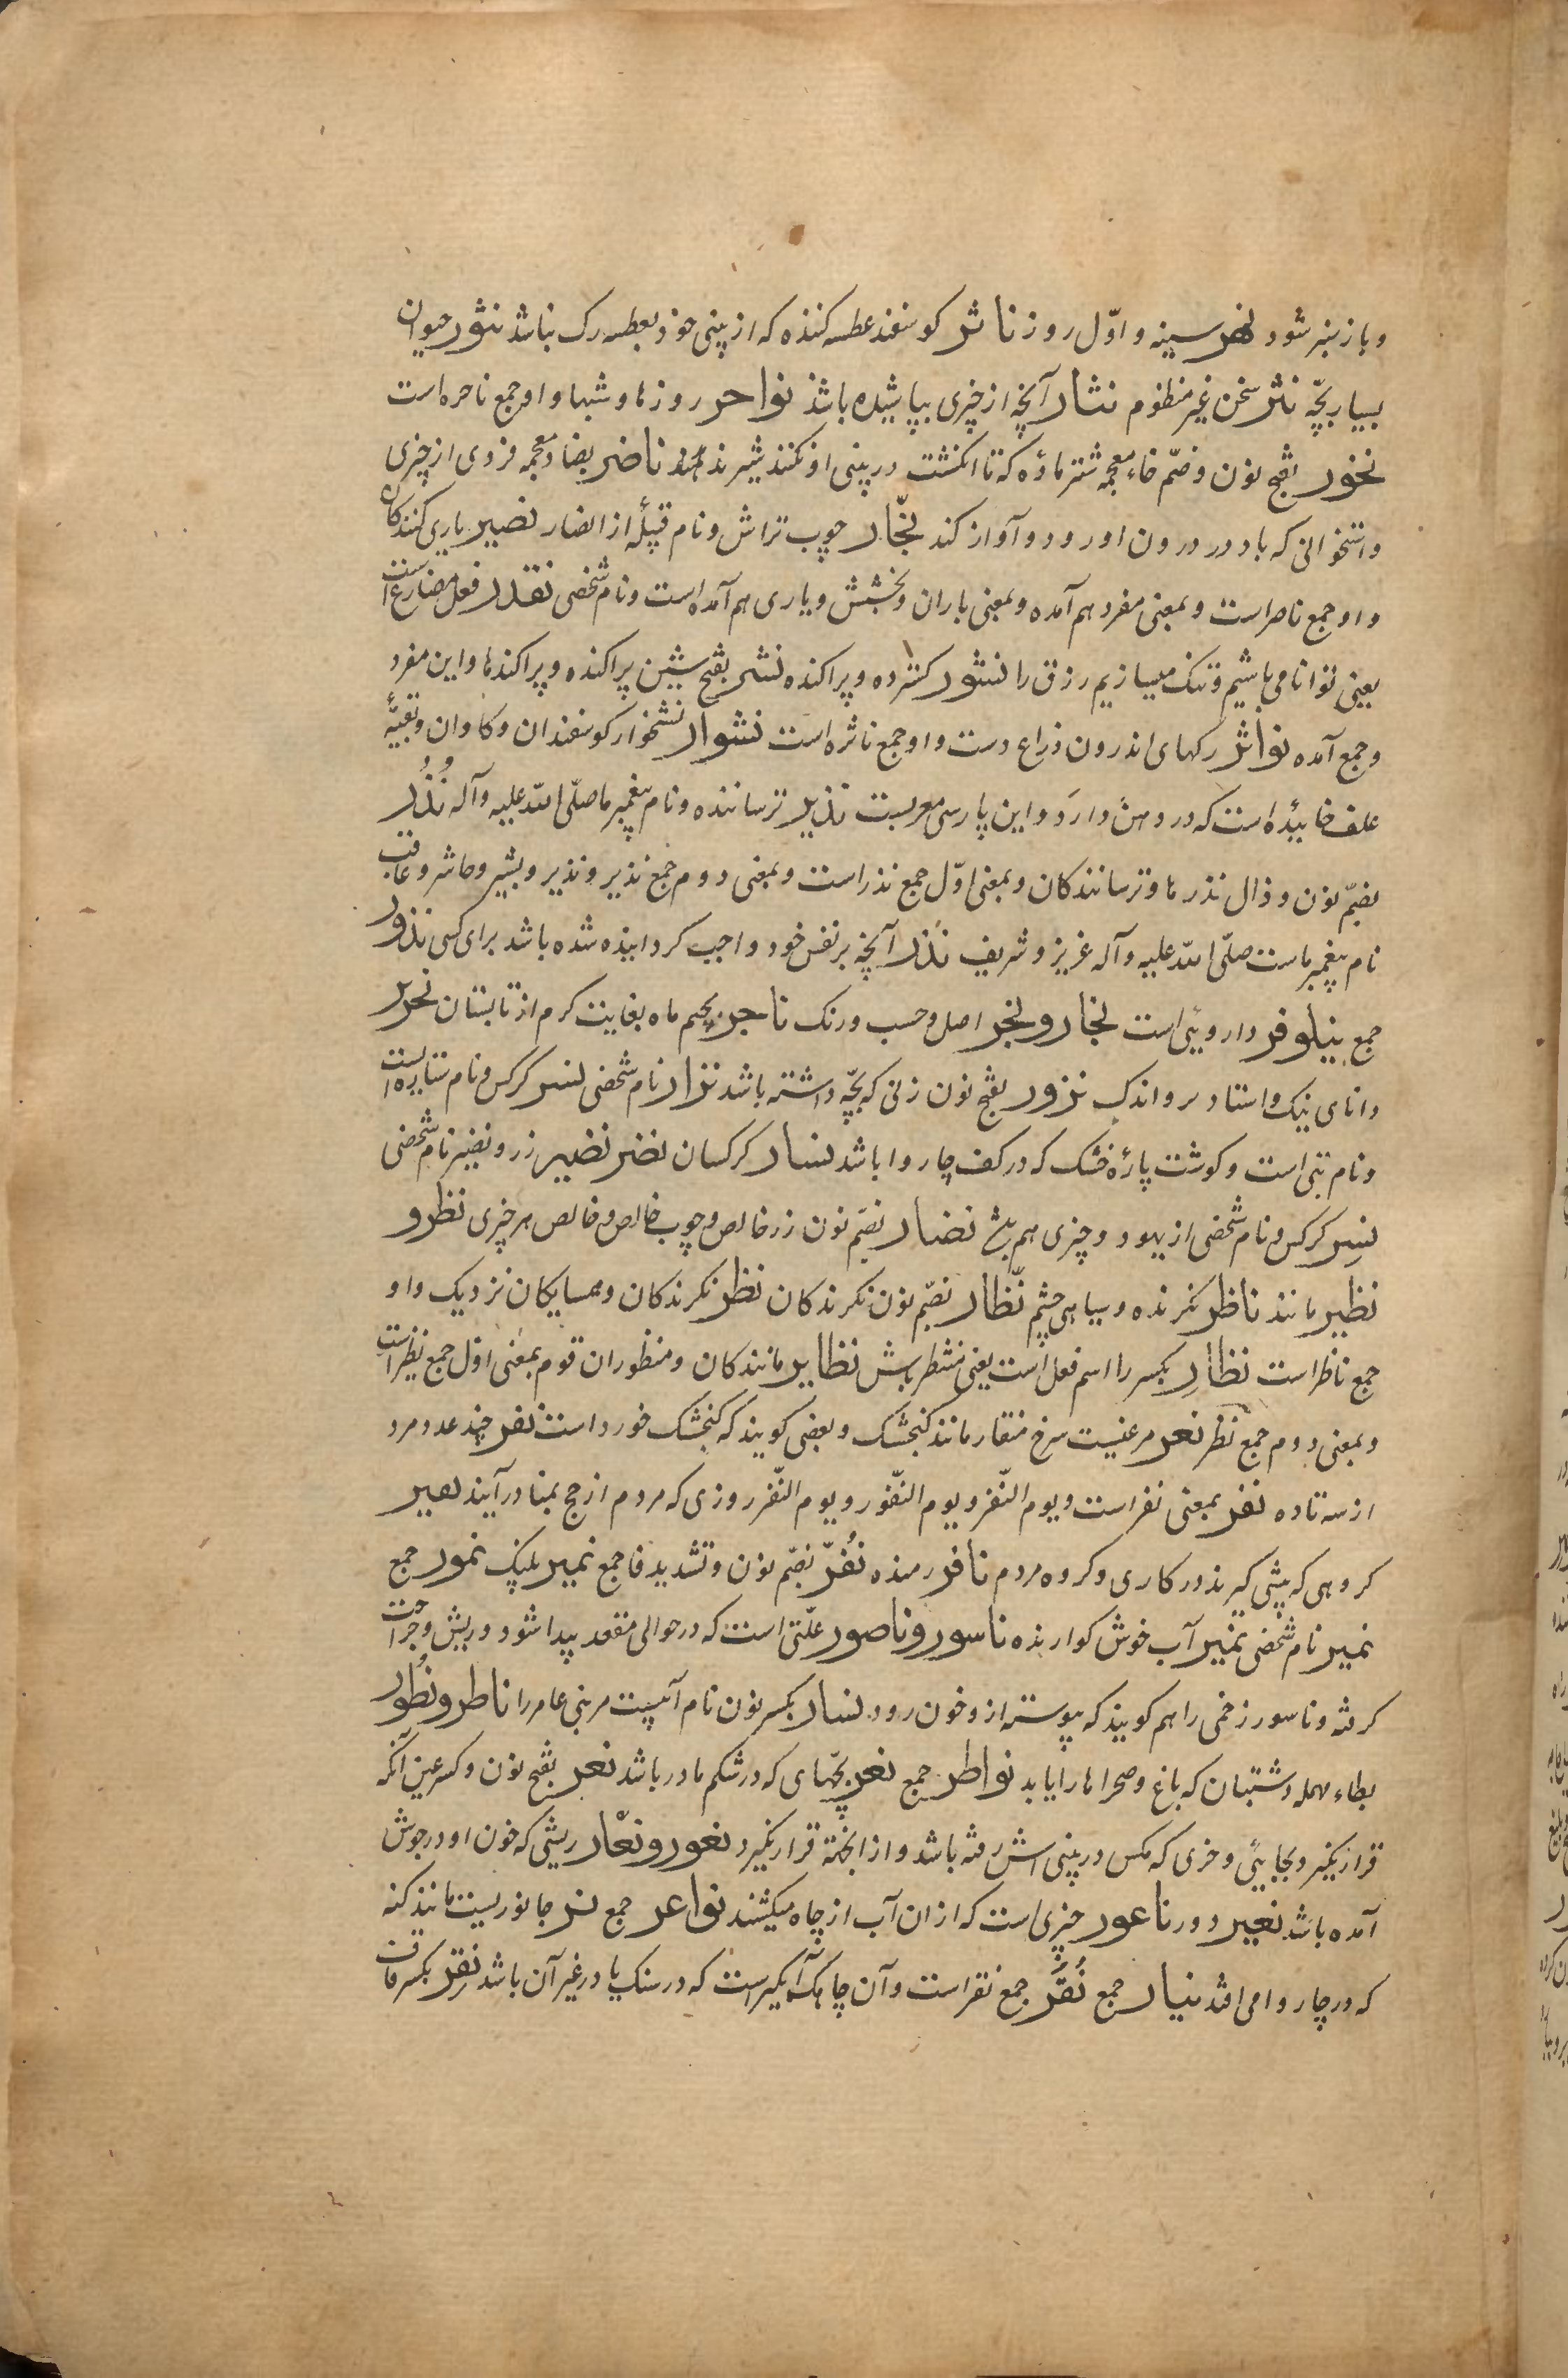 و باز سبز شود نحر سینه و اوّل روز ناثر کوسفند عطسه کننده که از بینی خود بعطسه رک بناشد نثور حیوان
بسیار بچّه نثر سخن غیر منظوم نثار آنچه از چیزی بپاشیده باشد نواحر روزها و شبها و او جمع ناحره است
نخور بفتح نون و ضمّ خاء معجمه شتر ماده که تا انکشت در بینی او نکنند شیر ندهد ناضر بضاد معجمه فزوی از چیزی
و استخوانی که باد در درون او رود و آواز کند نجّار چوب تراش و نام قبیلهٔ از انصار نصیر یاری کنندکان
و او جمع ناصر است و بمعنی مفرد هم آمده و بمعنی باران و بخشش و یاری هم آمده است و نام شخصی نقدر فعل مضارع است
یعنی توانا می باشیم و تنک میسازیم رزق را نشور کسترده و پراکنده نشر بفتح شین پراکنده و پراکندها و این مفرد
و جمع آمده نواشر رکهای اندرون ذراع دست و او جمع ناشره است نشوار نشخوار کوسفندان و کاوان و بقیّهٔ
علف خاییده است که در دهن دارَد و این پارسی معربست نذیر ترساننده و نام پیغمبر ما صلّی الله علیه و آله نُذُر
بضمّ نون و ذال نذرها و ترسانندکان و بمعنی اوّل جمع نذر است و بمعنی دوم جمع نذیر و نذیر و بشیر و حاشر و عاقب
نام پیغمبر ماست صلّی الله علیه و آله عزیز و شریف نَذر آنچه بر نفس خود واجب کردانیده شده باشد برای کسی نذور
جمع نیلوفر داروئی است نجار و نجر اصل و حسب و رنک ناجر بجیم ماه بغایت کرم از تابستان نحریر
دانای نیک و استاد نزر اندک نزور بفتح نون زنی که بچّه داشته باشد نزار نام شخصی نسر کرکس و نام ستاره است
و نام بتی است و کوشت پارهٔ خشک که در کف چاروا باشد نسار کرکسان نضر نضیر زر و نضیر نام شخصی
نسر کرکس و نام شخصی از یهود و چیزی هم نضار بضمّ نون زر خالص و چوب خالص و خالص هر چیزی نظر و
نظیر مانند ناظر نکرنده و سیاهی چشم نظّار بضمّ نون نکرندکان نظر نکرندکان و همسایکان نزدیک و او
جمع ناظر است نظارِ بکسر را اسم فعل است یعنی منتظر باش نظایر مانندکان و منظوران قوم بمعنی اوّل جمع نظیر است
و بمعنی دوم جمع نظر نغر مرغیست سرخ منقار مانند کنجشک و بعضی کویند که کنجشک خورد است نفر چند عدد مرد
از سه تا ده نفر بمعنی نفر است و یوم النّفر و یوم النّفور و یوم النّفر روزی که مردم از حج بمنا درآیند نفیر
کروهی که پیشی کیرند در کاری و کروه مردم نافر رمنده نُفّر بضمّ نون و تشدید فا جمع نمیر پلنک نمور جمع
نمیر نام شخصی نمیر آب خوش کوارنده ناسور و ناصور علّتی است که در حوالی مقعد پیدا شود و ریش و جراحت
کرفته و ناسور زخمی را هم کویند که پیوسته از و خون رود نسار بکسر نون نام آبیست مر بنی عامر را ناطر و نُطور
بطاء مهمله دشتبان که باغ و صحراها را یابد نواطر جمع نعر بچّهای که در شکم مادر باشد نعر بفتح نون و کسر عین آنکه
قرار نکیرد بجائی و خری که مکس در بینی اش رفته باشد و از انجهته قرار نکیرد نعور و نعّار ریشی که خون او در جوش
آمده باشد نعیر دور ناعور چیزی است که از ان آب از چاه میکشند نواعر جمع نبر جانوریست مانند کنه
که در چاروا می افتد نیار جمع نُقَر جمع نقر است و آن چاهک آبکیر است که در سنک یا در غیر آن باشد نقر بکسر قاف